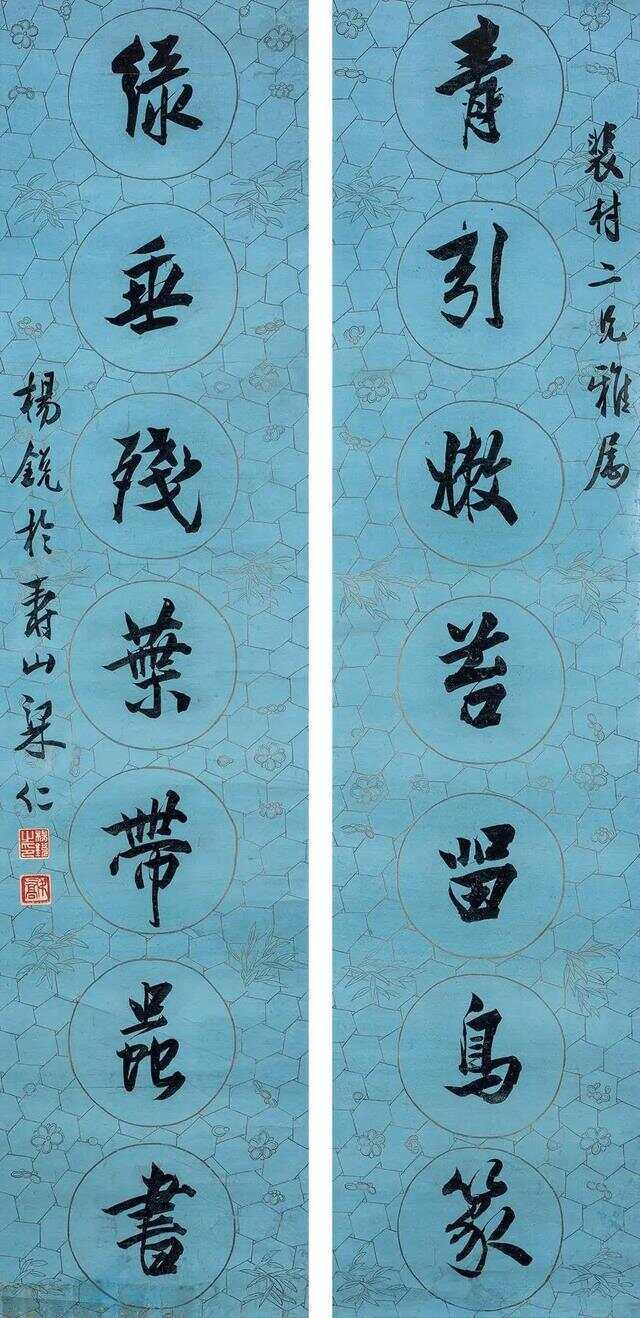 裴村二兄雅属
青引嫩苔留鳥篆
綠垂殘葉帶蟲書
楊銳於寿山梁仁
楊銳之印